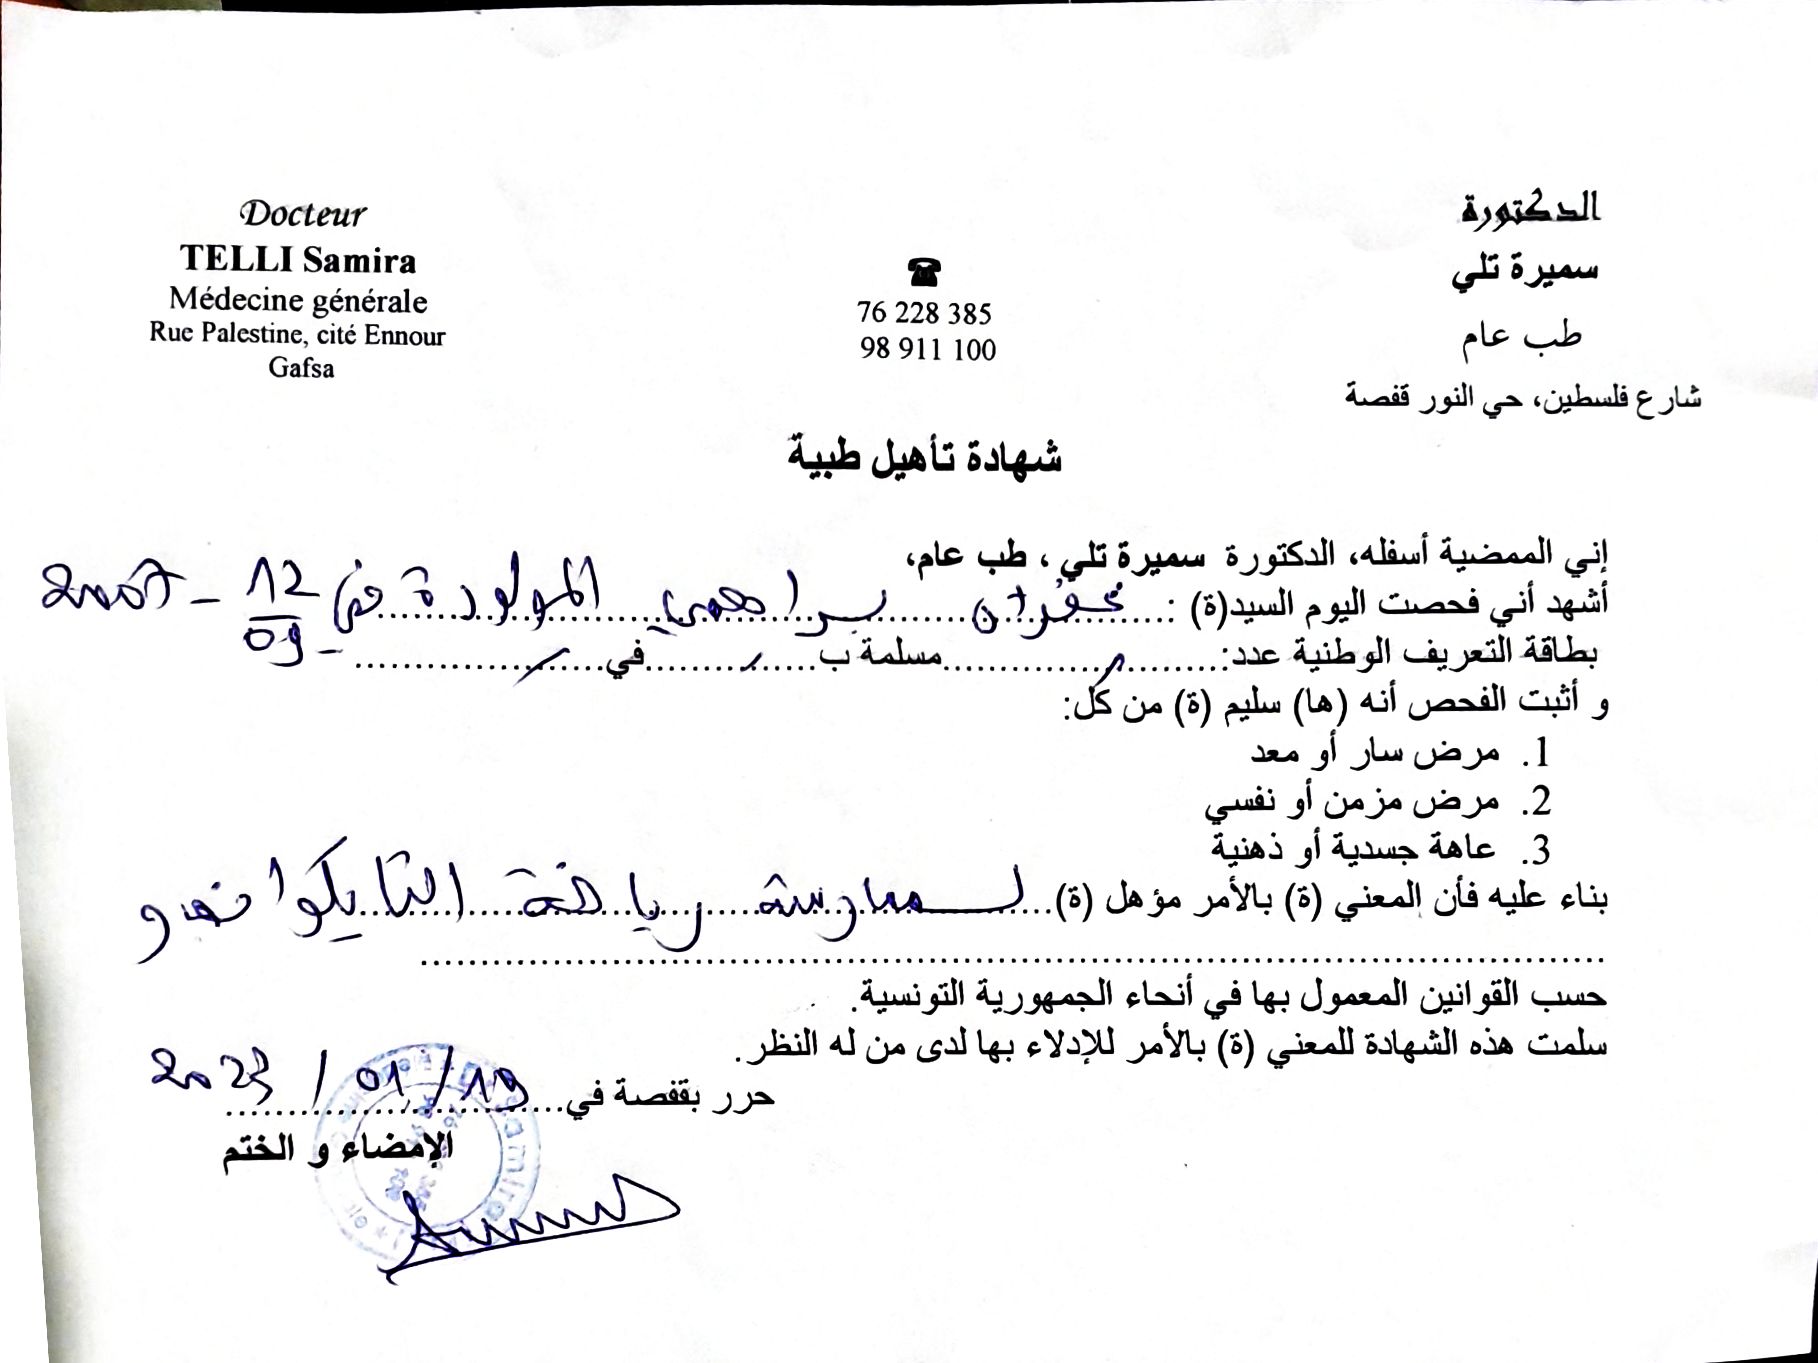 Docteur
TELLI Samira
Médecine générale
Rue Palestine, cité Ennour
Gafsa
76 228 385
98 911 100
الدكتورة
سميرة تلي
طب عام
شارع فلسطين، حي النور قفصة
شهادة تأهيل طبية
إني الممضية أسفله، الدكتورة سميرة تلي ، طب عام،
أشهد أني فحصت اليوم السيد(ة) : براهمي المولودة في 12 - 09 - 2007
بطاقة التعريف الوطنية عدد:........................مسلمة ب...............في.....................
و أثبت الفحص أنه (ها) سليم (ة) من كل:
1. مرض سار أو معد
2. مرض مزمن أو نفسي
3. عاهة جسدية أو ذهنية
بناء عليه فأن المعني (ة) بالأمر مؤهل (ة) لممارسة رياضة التايكواندو
حسب القوانين المعمول بها في أنحاء الجمهورية التونسية.
سلمت هذه الشهادة للمعني (ة) بالأمر للإدلاء بها لدى من له النظر.
حرر بقفصة في 19 / 01 / 2023
الإمضاء و الختم